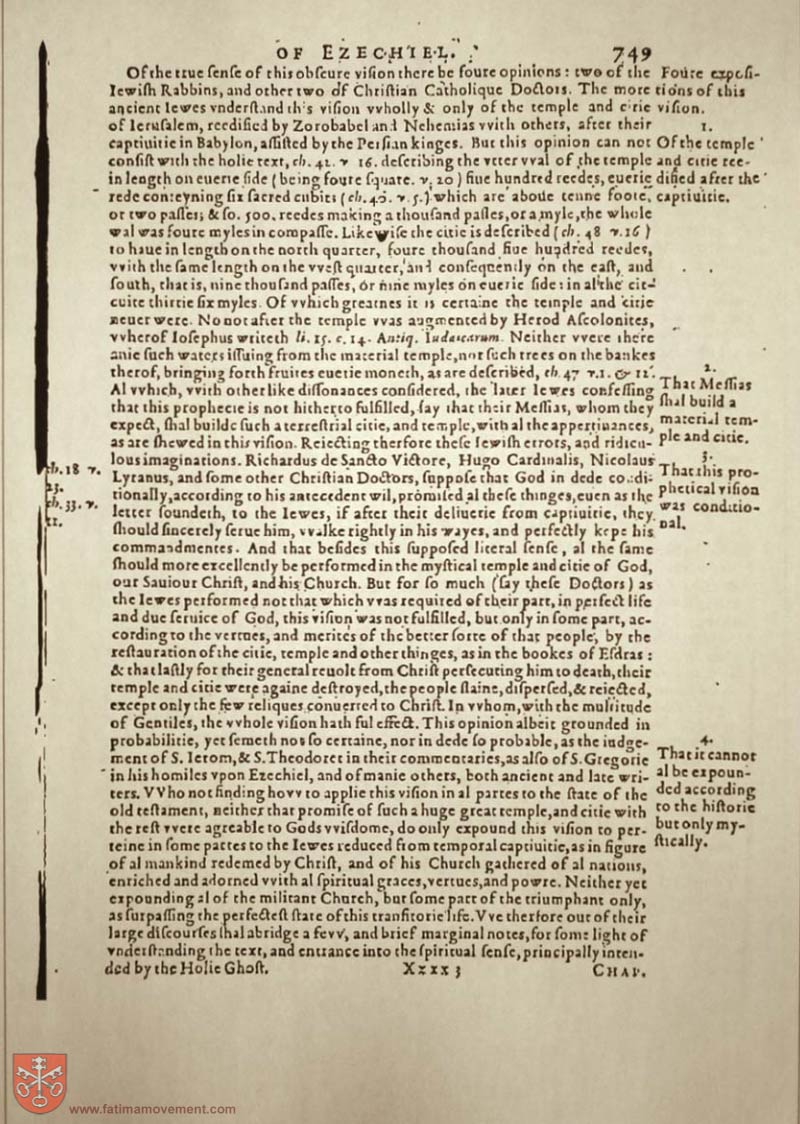 OF EZECHIEL. 749
Of the true ſenſe of this obſcure viſion there be foure opinions: two of the
Iewiſh Rabbins, and other two of Chriſtian Catholique Doctors. The more
ancient Iewes vnderſtand this viſion vvholly & only of the temple and citie
of Ieruſalem, reedified by Zorobabel and Nehemias vvith others, after their
captiuitie in Babylon, aſſiſted by the Perſian kinges. But this opinion can not
conſiſt with the holie text, ch. 42. v 16. deſcribing the vtter vval of the temple
in length on euerie ſide (being foure ſquare. v. 20) fiue hundred reedes, euerie
rede conteyning ſix ſacred cubits (ch. 40. v. 5.) which are aboue tenne foote,
or two paſſes; & ſo. 500. reedes making a thouſand paſſes, or a myle, the whole
wal was foure myles in compaſſe. Likewiſe the citie is deſcribed (ch. 48 v. 16)
to haue in length on the north quarter, foure thouſand fiue hundred reedes,
vvith the ſame length on the vveſt quarter, and conſequently on the eaſt, and
ſouth, that is, nine thouſand paſſes, or nine myles on euerie ſide: in al the cir-
cuite thirtie ſix myles. Of vvhich greatnes it is certaine the temple and citie
neuer were. No not after the temple vvas augmented by Herod Aſcolonites,
vvherof Ioſephus writeth li. 15. c. 14. Antiq. Iudaicarum. Neither vvere there
anie ſuch waters iſſuing from the material temple, nor ſuch trees on the bankes
therof, bringing forth fruites euerie moneth, as are deſcribed, ch. 47 v. 1. & 12.
Al vvhich, vvith other like diſſonances conſidered, the later Iewes confeſſing
that this prophecie is not hitherto fulfilled, ſay that their Meſſias, whom they
expect, ſhal builde ſuch a terreſtrial citie, and temple, with al the appertinances,
as are ſhewed in this viſion. Reiecting therfore theſe Iewiſh errors, and ridicu-
lous imaginations. Richardus de Sancto Victore, Hugo Cardinalis, Nicolaus
Lyranus, and ſome other Chriſtian Doctors, ſuppoſe that God in dede condi-
tionally, according to his antecedent wil, promiſed al theſe thinges, euen as the
letter ſoundeth, to the Iewes, if after their deliuerie from captiuitie, they
ſhould ſincerely ſerue him, vvalke rightly in his wayes, and perfectly kepe his
commandmentes. And that beſides this ſuppoſed literal ſenſe, al the ſame
ſhould more excellently be performed in the myſtical temple and citie of God,
our Sauiour Chriſt, and his Church. But for ſo much (ſay theſe Doctors) as
the Iewes performed not that which vvas required of their part, in perfect life
and due ſeruice of God, this viſion was not fulfilled, but only in ſome part, ac-
cording to the vertues, and merites of the better ſorte of that people, by the
reſtauration of the citie, temple and other thinges, as in the bookes of Eſdras:
& that laſtly for their general reuolt from Chriſt perſecuting him to death, their
temple and citie were againe deſtroyed, the people ſlaine, diſperſed, & reiected,
except only the few reliques conuerted to Chriſt. In vvhom, with the multitude
of Gentiles, the vvhole viſion hath ful effect. This opinion albeit grounded in
probabilitie, yet ſemeth not ſo certaine, nor in dede ſo probable, as the iudge-
ment of S. Ierom, & S. Theodoret in their commentaries, as alſo of S. Gregorie
in his homilies vpon Ezechiel, and of manie others, both ancient and late wri-
ters. VVho not finding hovv to applie this viſion in al partes to the ſtate of the
old teſtament, neither that promiſe of ſuch a huge great temple, and citie with
the reſt vvere agreable to Gods vviſdome, do only expound this viſion to per-
teine in ſome partes to the Iewes reduced from temporal captiuitie, as in figure
of al mankind redemed by Chriſt, and of his Church gathered of al nations,
enriched and adorned vvith al ſpiritual graces, vertues, and powre. Neither yet
expounding al of the militant Church, but ſome part of the triumphant only,
as ſurpaſſing the perfecteſt ſtate of this tranſitorie life. Vve therfore out of their
large diſcourſes ſhal abridge a fevv, and brief marginal notes, for ſome light of
vnderſtanding the text, and entrance into the ſpiritual ſenſe, principally inten-
ded by the Holie Ghoſt. Xxxx 3 CHAP.
Foure expoſi-
tions of this
viſion.
1.
Of the temple
and citie ree-
dified after the
captiuitie.
2.
That Meſſias
ſhal build a
material tem-
ple and citie.
3.
That this pro-
phetical viſion
was conditio-
nal.
4.
That it cannot
al be expoun-
ded according
to the hiſtorie
but only my-
ſtically.
ch. 18 v.
ch. 33. v.
www.fatimamovement.com